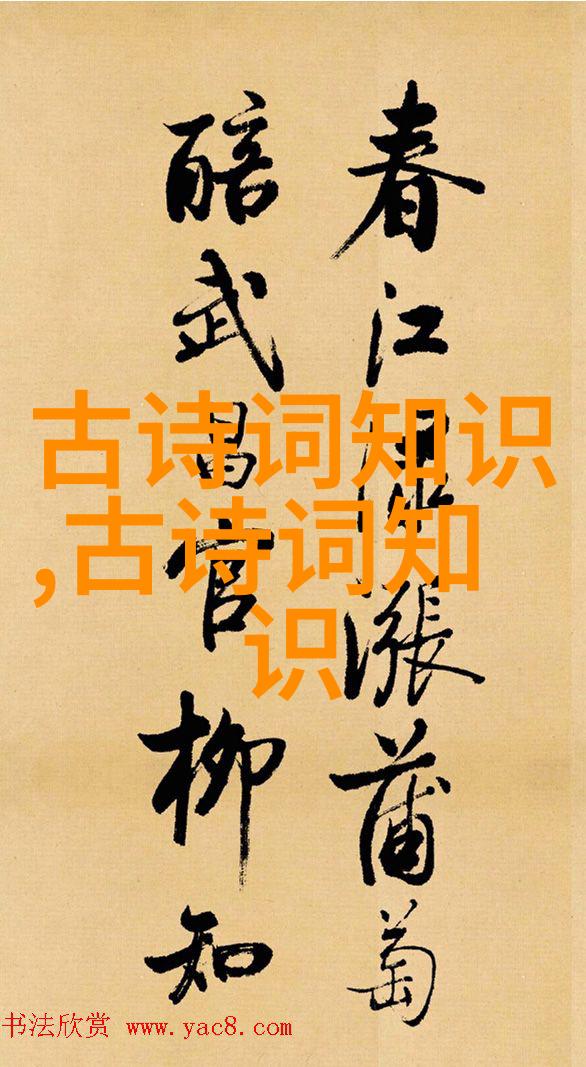 春江漲蒲萄
醅武昌官柳知
古诗词知识
,古诗词知
识
书法欣赏 www.yac8.com